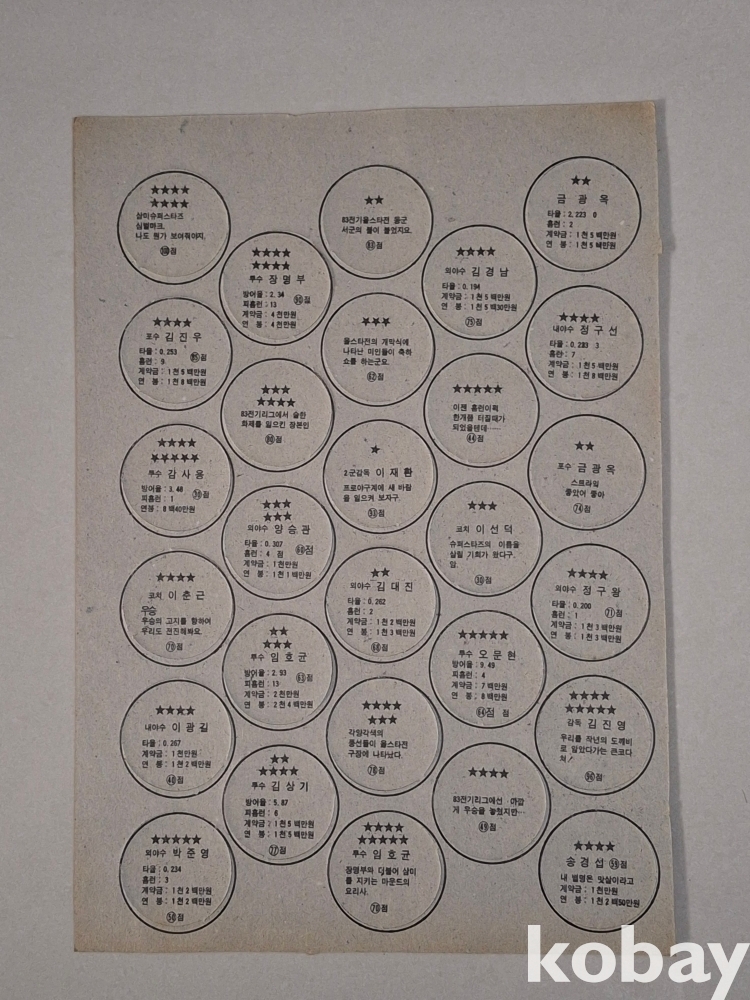 ★★★★
★★★★
삼미슈퍼스타즈
심벌마크.
나도 뭔가 보여줘야지.
★★★★
포수 김진우
타율 : 0.253
홈런 : 9.
계약금 : 1천 5백만원
연 봉 : 1천 8백만원
★★★★
★★★★★
투수 감사용
방어율 : 3.48
피홈런 : 1
연봉 : 8백40만원
★★★★
코치 이춘근
우승
우승의 고지를 향하여
우리도 전진해봐요.
70점
★★★★
내야수 이광길
타율 : 0.267
계약금 : 1천만원
연 봉 : 1천 2백만원
★★★★★
외야수 박준영
타율 : 0.234
홈런 : 3
계약금 : 1천 2백만원
연 봉 : 1천 2백만원
50점
★★★★
★★★★
투수 장명부
방어율 : 2.34
피홈런 : 13
계약금 : 4천만원
연 봉 : 4천만원
90점
★★★
★★★★
83전기리그에서 숱한
화제를 일으킨 장본인
★★★
★★★
외야수 양승관
타율 : 0.307
홈런 : 4 점
계약금 : 1천만원
연 봉 : 1천 1백만원
★★
★★★★
투수 임호균
방어율 : 2.93
피홈런 : 13
계약금 : 2천만원
연 봉 : 2천 4백만원
★★
★★★★
투수 김상기
방어율 : 5.87
피홈런 : 6
계약금 : 1천 5백만원
연 봉 : 1천 5백만원
77점
★★
83전기올스타전 동군
서군의 불이 붙었지요.
★★★
올스타전의 개막식에
나타난 미인들이 축하
쇼를 하는군요.
★
2군감독 이재환
프로야구계에 새 바람
을 일으켜 보자구.
★★
외야수 김대진
타율 : 0.262
홈런 : 2
계약금 : 1천 2백만원
연 봉 : 1천 3백만원
★★★★
★★★
각양각색의
풍선들이 올스타전
구장에 나타났다.
★★★★
★★★★★
투수 임호균
장명부와 더불어 삼미
를 지키는 마운드의
요리사.
70점
★★★★
외야수 김경남
타율 : 0.194
계약금 : 1천 5백만원
연 봉 : 1천 5백30만원
★★★★★
이젠 홈런이꼭
한개쯤 터질때가
되었을텐데……
44점
★★★
코치 이선덕
슈퍼스타즈의 이름을
살릴 기회가 왔다구.
암.
30점
★★★★★
투수 오문현
방어율 : 9.49
피홈런 : 4
계약금 : 7백만원
연 봉 : 8백만원
64점 점
★★★★
83전기리그에선 아깝
게 우승을 놓쳤지만…
49점
★★
금광옥
타율 : 2.223 0
홈런 : 2
계약금 : 1천 5백만원
연 봉 : 1천 5백만원
★★★★
내야수 정구선
타율 : 0.233 3
홈런 : 7
계약금 : 1천 5백만원
연 봉 : 1천 8백만원
★★
포수 금광옥
스트라잌
좋았어 좋아
74점
★★★★
외야수 정구왕
타율 : 0.200
홈런 : 1
계약금 : 1천 3백만원
연 봉 : 1천 3백만원
71점
★★★★
★★★★★
감독 김진영
우리를 작년의 도깨비
로 알았다가는 큰코다
쳐!
90점
★★★★
송경섭
내 별명은 맞살이라고
계약금 : 1천만원
연 봉 : 1천 2백50만원
kobay